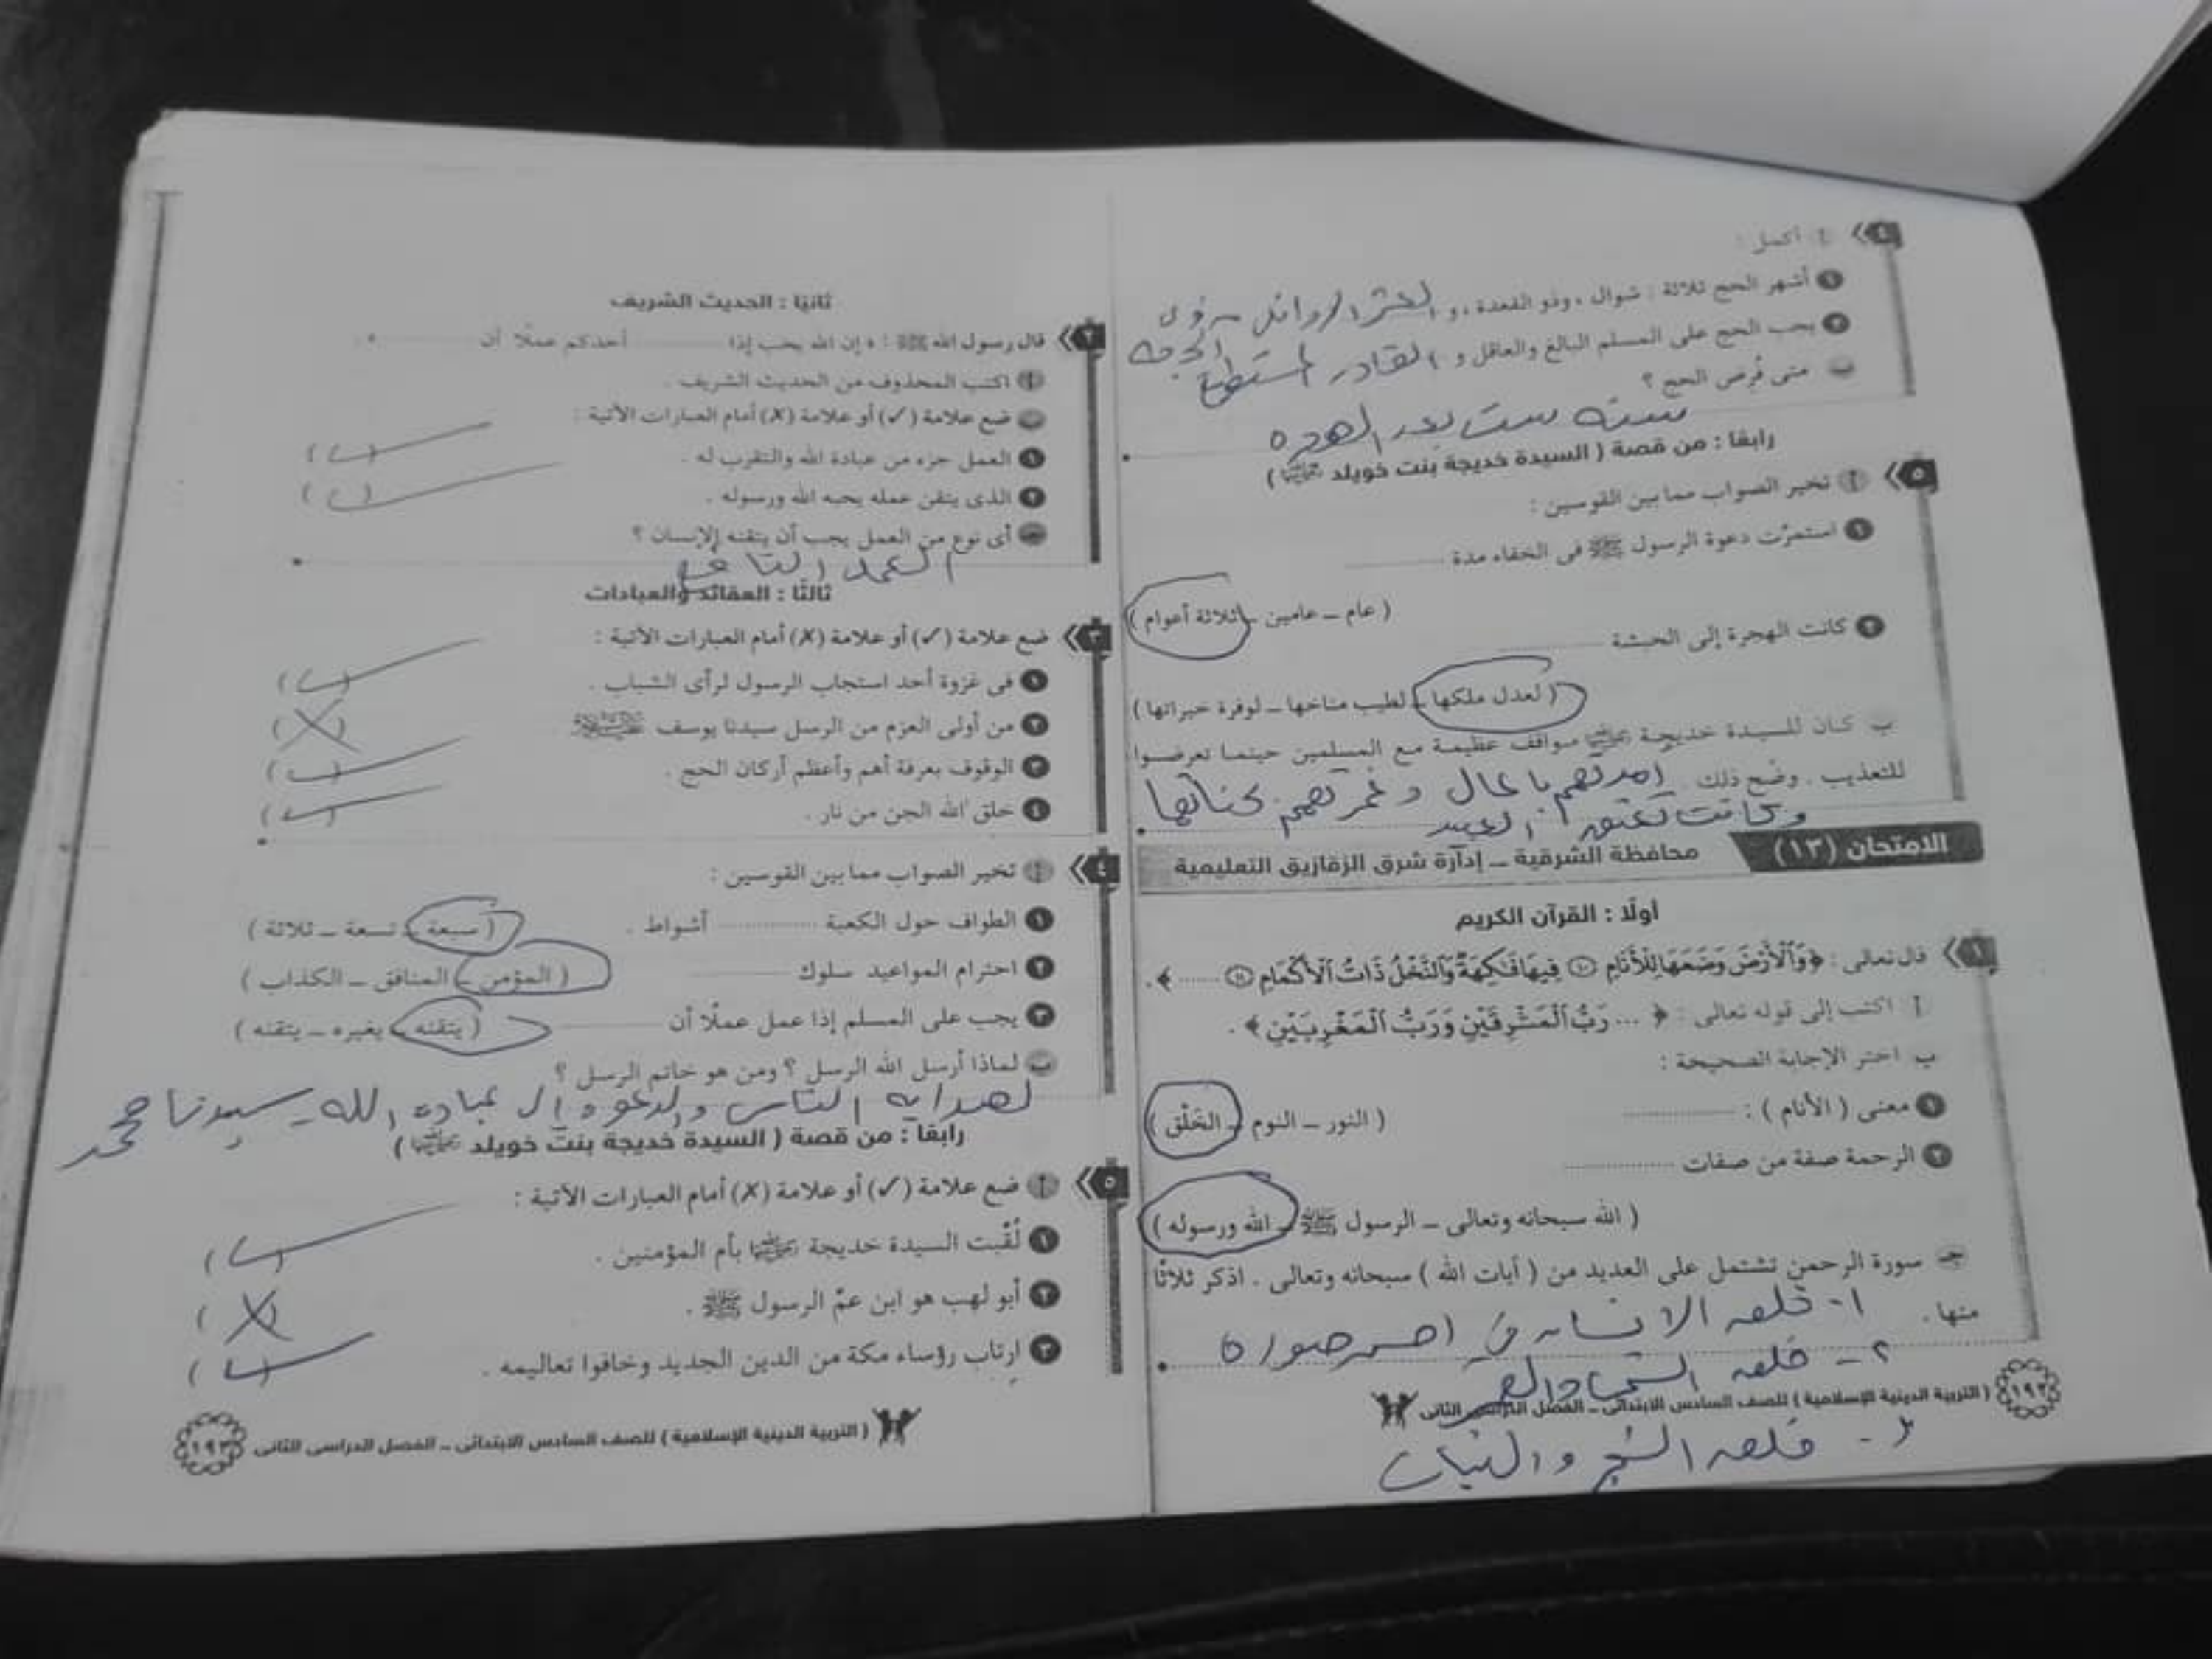 ٤ أ أكمل :
١ أشهر الحج ثلاثة : شوال ، وذو القعدة ، و العشر الأوائل من ذى الحجة
٢ يجب الحج على المسلم البالغ والعاقل و القادر المستطيع
ب متى فُرض الحج ؟
سنه ست بعد الهجره
رابعًا : من قصة ( السيدة خديجة بنت خويلد رضي الله عنها )
٥ أ تخير الصواب مما بين القوسين :
١ استمرَّت دعوة الرسول ﷺ فى الخفاء مدة ............
( عام ـ عامين ـ ثلاثة أعوام )
٢ كانت الهجرة إلى الحبشة ............
( لعدل ملكها ـ لطيب مناخها ـ لوفرة خيراتها )
ب كان للسيدة خديجة رضي الله عنها مواقف عظيمة مع المسلمين حينما تعرضوا
للتعذيب . وضح ذلك . امدتهم بالمال و غمرتهم بحنانها
وكانت تعتق العبيد
الامتحان (١٣) محافظة الشرقية ـ إدارة شرق الزقازيق التعليمية
أولًا : القرآن الكريم
١ قال تعالى : ﴿ وَٱلْأَرْضَ وَضَعَهَا لِلْأَنَامِ ١٠ فِيهَا فَٰكِهَةٌ وَٱلنَّخْلُ ذَاتُ ٱلْأَكْمَامِ ١١ ....... ﴾ .
أ اكتب إلى قوله تعالى : ﴿ ... رَبُّ ٱلْمَشْرِقَيْنِ وَرَبُّ ٱلْمَغْرِبَيْنِ ﴾ .
ب اختر الإجابة الصحيحة :
١ معنى ( الأنام ) : ............
( النور ـ النوم ـ الخَلْق )
٢ الرحمة صفة من صفات ............
( الله سبحانه وتعالى ـ الرسول ﷺ ـ الله ورسوله )
جـ سورة الرحمن تشتمل على العديد من ( آيات الله ) سبحانه وتعالى . اذكر ثلاثًا
منها .
١- خلق الانسان في احسن صورة
٢- خلق الشمس والقمر
( التربية الدينية الإسلامية ) للصف السادس الابتدائى ـ الفصل الدراسى الثانى ١٩٢
٣- خلق الشجر والنبات
ثانيًا : الحديث الشريف
٢ قال رسول الله ﷺ : « إن الله يحب إذا ............ أحدكم عملًا أن ............ » .
أ اكتب المحذوف من الحديث الشريف .
ب ضع علامة (✓) أو علامة (✗) أمام العبارات الآتية :
١ العمل جزء من عبادة الله والتقرب له . ( ✓ )
٢ الذى يتقن عمله يحبه الله ورسوله . ( ✓ )
جـ أى نوع من العمل يجب أن يتقنه الإنسان ؟
العمل النافع
ثالثًا : العقائد والعبادات
٣ ضع علامة (✓) أو علامة (✗) أمام العبارات الآتية :
١ فى غزوة أحد استجاب الرسول لرأى الشباب . ( ✓ )
٢ من أولى العزم من الرسل سيدنا يوسف عليه السلام . ( ✗ )
٣ الوقوف بعرفة أهم وأعظم أركان الحج . ( ✓ )
٤ خلق الله الجن من نار . ( ✓ )
٤ أ تخير الصواب مما بين القوسين :
١ الطواف حول الكعبة ............ أشواط . ( سبعة ـ تسعة ـ ثلاثة )
٢ احترام المواعيد سلوك ............ ( المؤمن ـ المنافق ـ الكذاب )
٣ يجب على المسلم إذا عمل عملًا أن ............ ( يتقنه ـ يغيره ـ يتقنه )
ب لماذا أرسل الله الرسل ؟ ومن هو خاتم الرسل ؟
لهدايه الناس والدعوه الى عباده الله - سيدنا محمد
رابعًا : من قصة ( السيدة خديجة بنت خويلد رضي الله عنها )
٥ أ ضع علامة (✓) أو علامة (✗) أمام العبارات الآتية :
١ لُقِّبت السيدة خديجة رضي الله عنها بأم المؤمنين . ( ✓ )
٢ أبو لهب هو ابن عمِّ الرسول ﷺ . ( ✗ )
٣ ارتاب رؤساء مكة من الدين الجديد وخافوا تعاليمه . ( ✓ )
( التربية الدينية الإسلامية ) للصف السادس الابتدائى ـ الفصل الدراسى الثانى ١٩٣